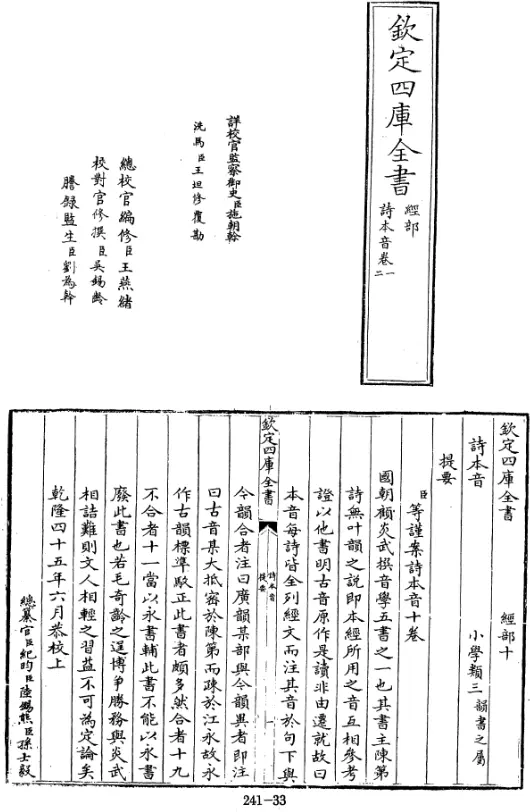 欽定四庫全書
經部
詩本音卷一二
詳校官監察御史臣施朝幹
洗馬臣王坦修覆勘
總校官編修臣王燕緒
校對官修撰臣吳錫齡
謄録監生臣劉為幹
欽定四庫全書 經部十
詩本音 小學類三 韻書之屬
提要
臣等謹案詩本音十卷
國朝顧炎武撰音學五書之一也其書主陳第
詩無叶韻之説即本經所用之音互相參考
證以他書明古音原作是讀非由遷就故曰
本音每詩皆全列經文而注其音於句下與
欽定四庫全書 詩本音 提要 一
今韻合者注曰廣韻某部與今韻異者即注
曰古音某大抵宻於陳第而疎於江永故永
作古韻標準駁正此書者頗多然合者十九
不合者十一當以永書輔此書不能以永書
廢此書也若毛奇齡之逞博爭勝務與炎武
相詰難則文人相輕之習益不可為定論矣
乾隆四十五年六月恭校上
總纂官臣紀昀臣陸錫熊臣孫士毅
241-33